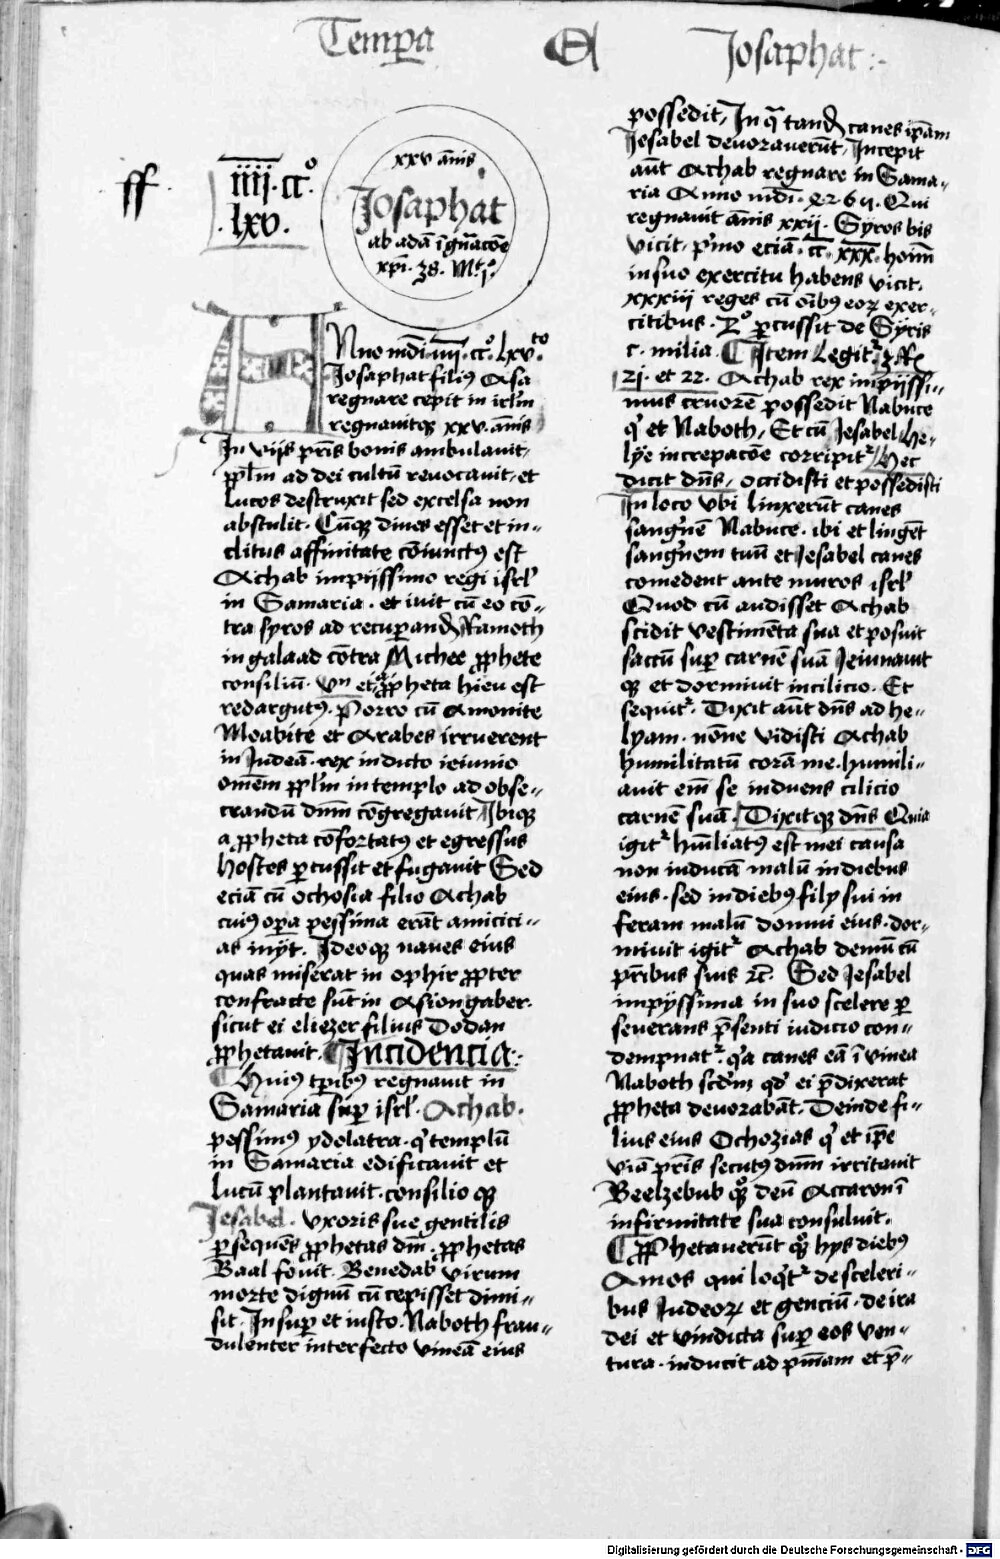 Tempa A Josaphat :-
ff.
iiii. cc.º
. lxv.
xxv añis
Josaphat
ab adā
xpi. 38. M
Nno mdī. iiii. cc.º lxv.to
Josaphat filiꝰ Asa
regnare cepit in irl̄m
regnauitqꝫ xxv. añis
In vijs pr̄is bonis ambulauit,
ppl̄m ad dei cultū reuocauit, et
lucos destruxit sed excelsa non
abstulit. Cūqꝫ diues esset et in-
clitus affinitate cōiunctꝰ est
Achab impijssimo regi isrl̄
in Samaria. et iuit cū eo cō-
tra syros ad recuꝑand Ramoth
in galaad cōtra Michee ꝓphete
consiliū. vn̄ et a ꝓpheta hieu est
redargutꝰ. Porro cū Amonite
Moabite et Arabes irruerent
in Judeā. rex indicto ieiunio
om̄em ppl̄m in templo ad obse-
crandū dn̄m cōgregauit, Ibiqꝫ
a ꝓpheta cōfortatꝰ et egressus
hostes ꝑcussit et fugauit Sed
eciā cū ochosia filio Achab
cuiꝰ oꝑa pessima erāt amicici-
as inijt. Ideoqꝫ naues eius
quas miserat in ophir ꝓpter
confracte sūt in Asiongaber.
sicut ei eliezer filius Dodan
ꝓphetauit. ¶ Incidencia:.
Huiꝰ tꝑibꝰ regnauit in
Samaria suꝑ isrl̄. Achab.
pessimꝰ ydolatra. q̇ templū
in Samaria edificauit et
lucū plantauit. consilio qꝫ
Jesabel. vxoris sue gentilis
ꝑsequēs ꝓphetas dn̄i. ꝓphetas
Baal fouit. Benedab virum
morte dignū cū cepisset dimi-
sit. Insuꝑ et iusto. Naboth frau-
dulenter interfecto vineā eius
possedit, In q̄ tand canes ip̄am
Jesabel deuorauerūt, Incepit
aūt Achab regnare in Sama-
ria Anno mdī.
regnauit añis xxij. Syros bis
vicit. p̄mo eciā. cc. xxx. hoīm
in suo exercitu habens vicit.
xxxiii reges cū oībus eoꝝ exer-
citibus. 2º ꝑcussit de Syris
c. milia. ¶ Item legitᷣ 3 Rx
21. et 22. Achab rex impijssi-
mus possedit Nabuce
q̇ et Naboth, Et cū Jesabel he-
lye increpacōe corripitᷣ, Hec
dicit dn̄s, occidisti et possedisti
In loco vbi linxerūt canes
sangˈnē Nabuce. ibi et lingēt
sangˈnem tuū et Jesabel canes
comedent ante muros isrl̄
Quod cū audisset Achab
scidit vestimēta sua et posuit
saccū suꝑ carnē suā Jeiunauit
qꝫ et dormiuit in cilicio. Et
sequitᷣ. Dixit aūt dn̄s ad he-
lyam. nōne vidisti Achab
humilitatū corā me. humili-
auit em̄ se induens cilicio
carnē suā. Dixitqꝫ dn̄s Quia
igitᷣ hūiliatꝰ est mei causa
non inducā malū in diebus
eius. sed in diebꝰ filij sui in
feram malū domui eius. dor-
miuit igitᷣ Achab demū cū
pr̄ibus suis ꝛc̄. Sed Jesabel
impijssima in suo scelere ꝑ
seuerans p̄senti iudicio con-
dempnatᷣ. q̇a canes eā ī vinea
Naboth scd̄m qd̄ ei p̄dixerat
ꝓpheta deuorabāt. Deinde fi-
lius eius Ochozias q̇ et ip̄e
viā pr̄is secutꝰ dn̄m irritauit
Beelzebub qꝫ deū Accaron ī
infirmitate sua consuluit.
¶ Prophetauerūt qꝫ hys diebꝰ
Amos qui loq̇tᷣ de sceleri-
bus Judeoꝝ et genciū. de ira
dei et vindicta suꝑ eos ven-
tura. inducit ad pn̄iam et p̄-
Digitalisierung gefördert durch die Deutsche Forschungsgemeinschaft - DFG